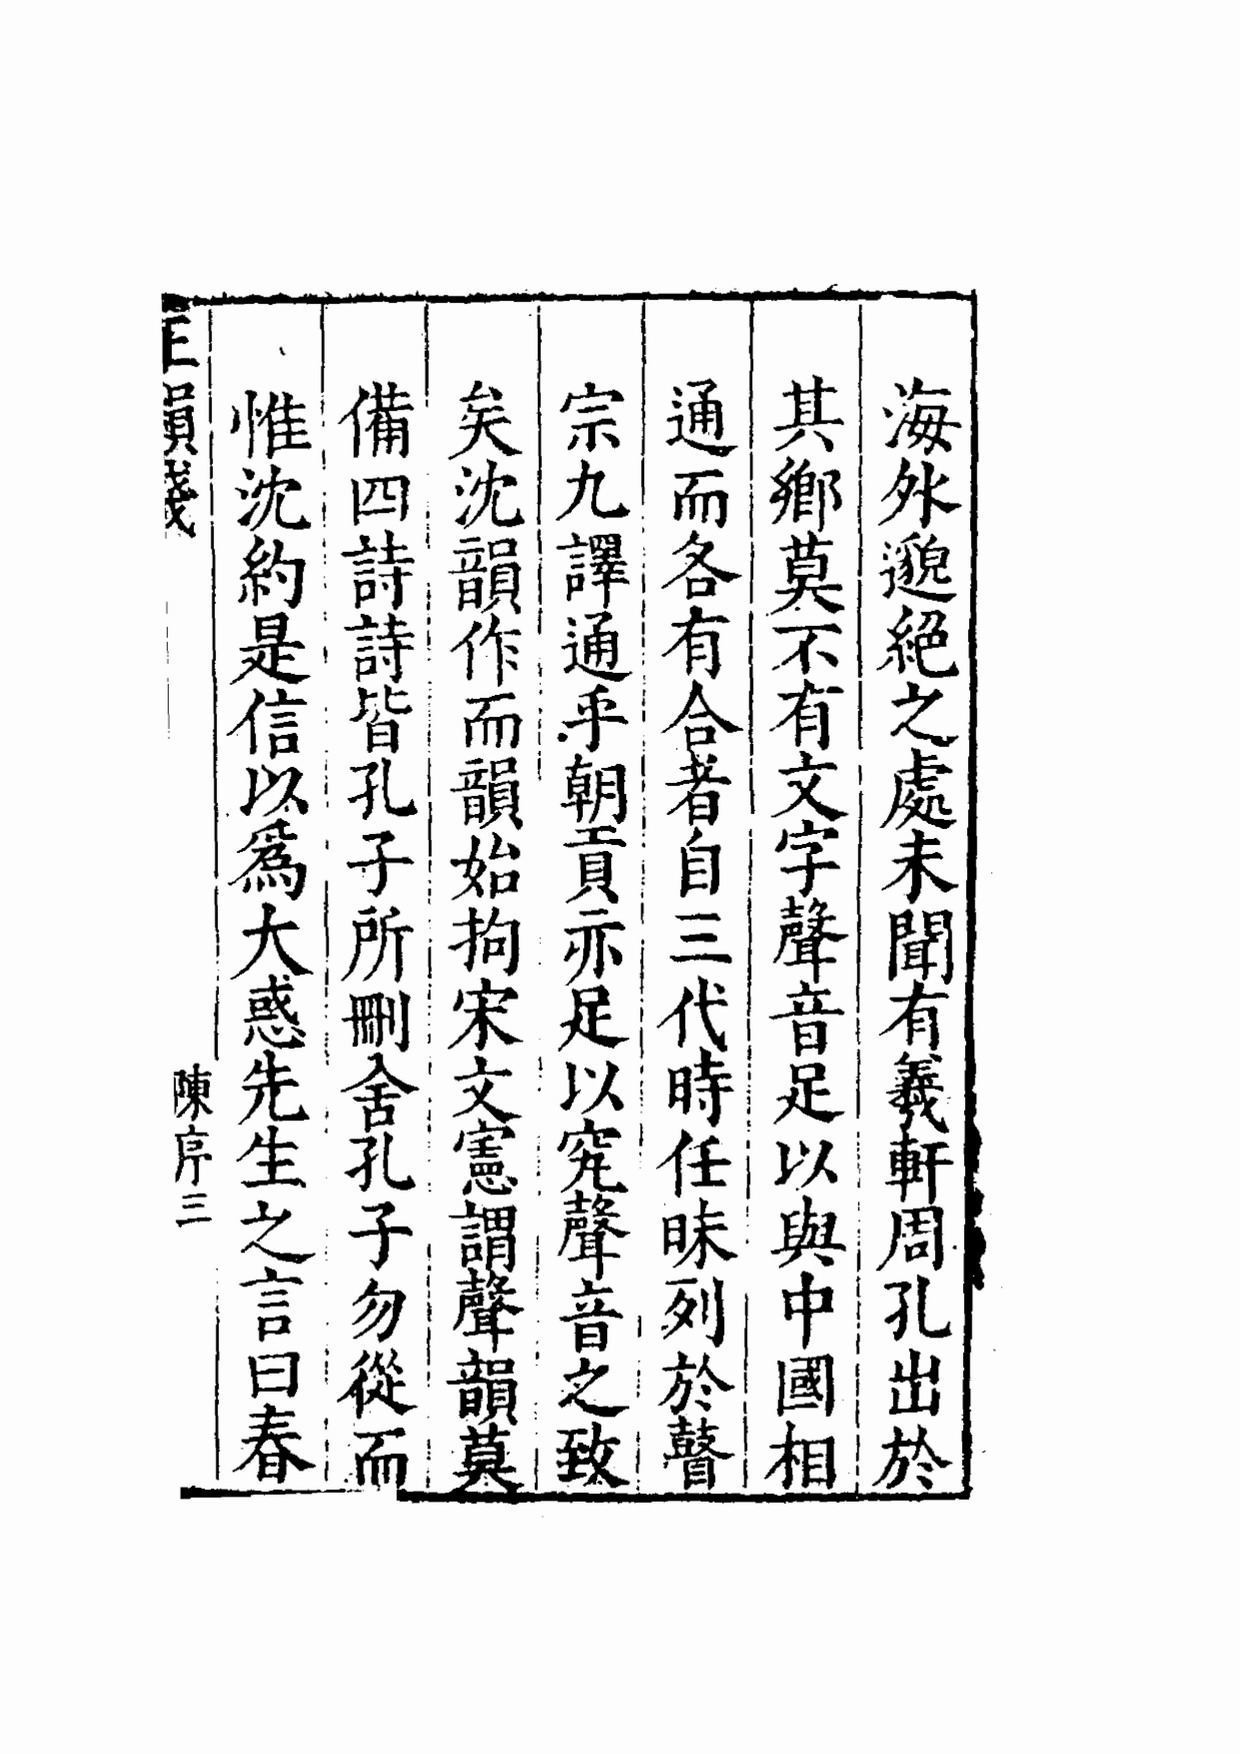 海外邈絕之處未聞有羲軒周孔出於
其鄉莫不有文字聲音足以與中國相
通而各有合者自三代時任昩列於瞽
宗九譯通乎朝貢亦足以究聲音之致
矣沈韻作而韻始拘宋文憲謂聲韻莫
備四詩詩皆孔子所刪舍孔子勿從而
惟沈約是信以爲大惑先生之言曰春
正韻箋
陳序三